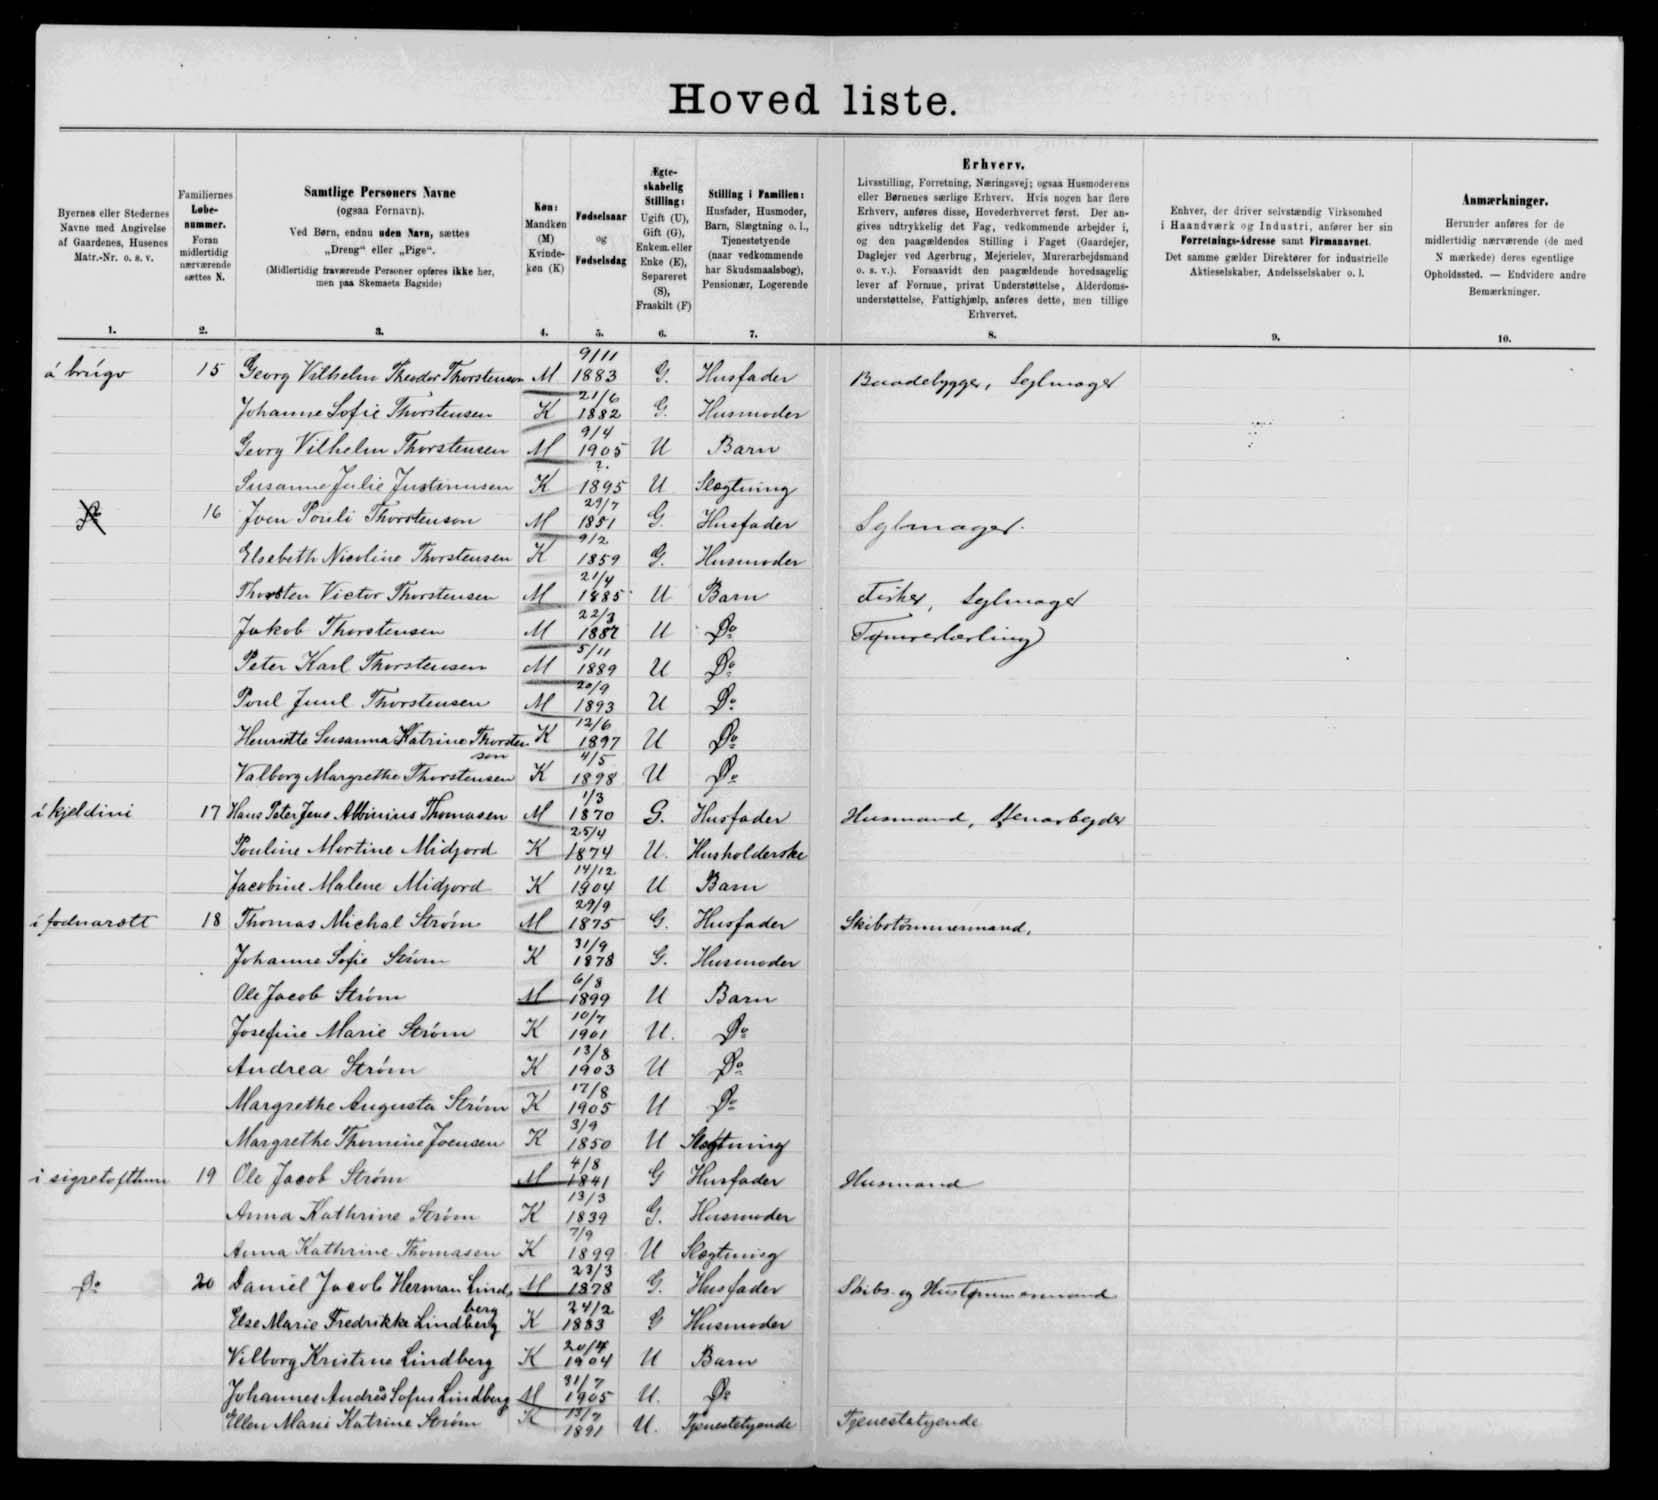 Hoved liste.
Byernes eller Stedernes
Navne med Angivelse
af Gaardenes, Husenes
Matr.-Nr. o. s. v.
1.
Familiernes
Løbe-
nummer.
Foran
midlertidig
nærværende
sættes N.
2.
Samtlige Personers Navne
(ogsaa Fornavn).
Ved Børn, endnu uden Navn, sættes
„Dreng“ eller „Pige“.
(Midlertidig fraværende Personer opføres ikke her,
men paa Skemaets Bagside)
3.
Køn:
Mandkøn
(M)
Kvinde-
køn (K)
4.
Fødselsaar
og
Fødselsdag
5.
Ægte-
skabelig
Stilling:
Ugift (U),
Gift (G),
Enkem. eller
Enke (E),
Separeret
(S),
Fraskilt (F)
6.
Stilling i Familien:
Husfader, Husmoder,
Barn, Slægtning o. l.,
Tjenestetyende
(naar vedkommende
har Skudsmaalsbog),
Pensionær, Logerende
7.
Erhverv.
Livsstilling, Forretning, Næringsvej; ogsaa Husmoderens
eller Børnenes særlige Erhverv. Hvis nogen har flere
Erhverv, anføres disse, Hovederhvervet først. Der an-
gives udtrykkelig det Fag, vedkommende arbejder i,
og den paagældendes Stilling i Faget (Gaardejer,
Daglejer ved Agerbrug, Mejerielev, Murerarbejdsmand
o. s. v.). Forsaavidt den paagældende hovedsagelig
lever af Formue, privat Understøttelse, Alderdoms-
understøttelse, Fattighjælp, anføres dette, men tillige
Erhvervet.
8.
Enhver, der driver selvstændig Virksomhed
i Haandværk og Industri, anfører her sin
Forretnings-Adresse samt Firmanavnet.
Det samme gælder Direktører for industrielle
Aktieselskaber, Andelsselskaber o. l.
9.
Anmærkninger.
Herunder anføres for de
midlertidig nærværende (de med
N mærkede) deres egentlige
Opholdssted. — Endvidere andre
Bemærkninger.
10.
á brúgv 15 Georg Vilhelm Theodor Thorstensen M 9/11 1883 G. Husfader Baadebygger, Sejlmager
Johanne Sofie Thorstensen K 21/6 1882 G. Husmoder
Georg Vilhelm Thorstensen M 9/4 1905 U Barn
Susanne Julie Justinusen K ?. 1895 U Slægtning
Do 16 Joen Pouli Thorstensen M 29/7 1851 G. Husfader Sejlmager.
Elsebeth Nicoline Thorstensen K 9/2 1859 G. Husmoder
Thorsten Victor Thorstensen M 21/4 1885 U Barn Fisker, Sejlmager
Jakob Thorstensen M 22/3 1887 U Do Tømrerlærling
Peter Karl Thorstensen M 5/11 1889 U Do
Poul Juul Thorstensen M 20/9 1893 U Do
Henriette Susanna Katrine Thorsten
sen K 12/6 1897 U Do
Valborg Margrethe Thorstensen K 4/5 1898 U Do
í kjeldini 17 Hans Peter Jens Albinius Thomasen M 1/3 1870 G. Husfader Husmand, Stenarbejder
Pouline Martine Midjord K 25/4 1874 U. Husholderske
Jacobine Malene Midjord K 14/12 1904 U Barn
í fodnarætt 18 Thomas Michal Strøm M 29/9 1875 G. Husfader Skibstømmermand.
Johanne Sofie Strøm K 31/9 1878 G. Husmoder
Ole Jacob Strøm M 6/8 1899 U Barn
Josefine Marie Strøm K 10/7 1901 U. Do
Andrea Strøm K 13/8 1903 U Do
Margrethe Augusta Strøm K 17/8 1905 U Do
Margrethe Thomine Joensen K 3/9 1850 U Slægtning
í sigretofttum 19 Ole Jacob Strøm M 4/8 1841 G Husfader Husmand
Anna Kathrine Strøm K 13/3 1839 G. Husmoder
Anna Kathrine Thomasen K 7/9 1899 U Slægtning
Do 20 Daniel Jacob Herman Lind-
berg M 23/3 1878 G. Husfader Skibs- og Hustømmermand
Else Marie Fredrikke Lindberg K 24/2 1883 G Husmoder
Vilborg Kristine Lindberg K 20/4 1904 U Barn
Johannes Andrés Sofus Lindberg M 31/7 1905 U. Do
Ellen Marie Katrine Strøm K 1891 U. Tjenestetyende Tjenestetyende